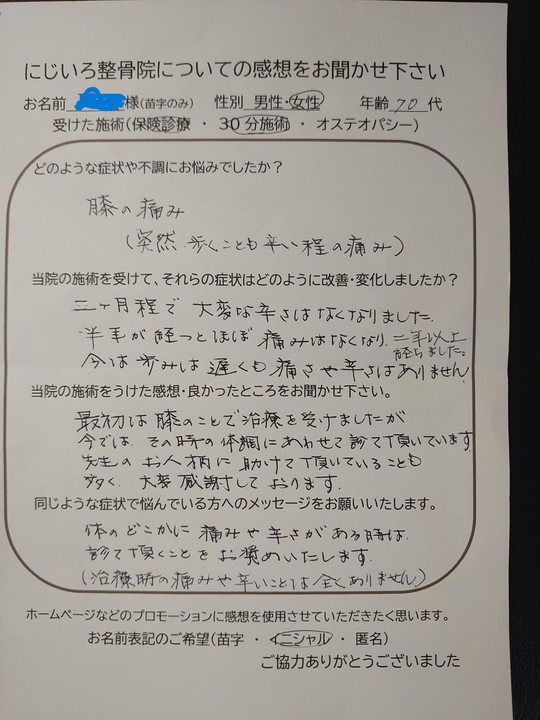 にじいろ整骨院についての感想をお聞かせ下さい
お名前 様(苗字のみ) 性別 男性・女性 年齢 70 代
受けた施術(保険診療 ・ 30分施術 ・ オステオパシー)
どのような症状や不調にお悩みでしたか?
膝の痛み
(突然 歩くことも辛い程の痛み)
当院の施術を受けて、それらの症状はどのように改善・変化しましたか?
三ヶ月程で 大変な辛さはなくなりました。
半年が経つとほぼ 痛みはなくなり、二年以上経ちました。
今は歩みは遅くも痛さや辛さはありません
当院の施術をうけた感想・良かったところをお聞かせ下さい。
最初は膝のことで治療を受けましたが
今では その時の体調にあわせて診て頂いています
先生の お人柄に 助けて頂いていることも
多く、大変感謝しております。
同じような症状で悩んでいる方へのメッセージをお願いいたします。
体のどこかに 痛みや辛さがある時は、
診て頂くことを お奨めいたします。
(治療時の痛みや辛いことは全くありません)
ホームページなどのプロモーションに感想を使用させていただきたく思います。
お名前表記のご希望(苗字 ・ イニシャル ・ 匿名)
ご協力ありがとうございました